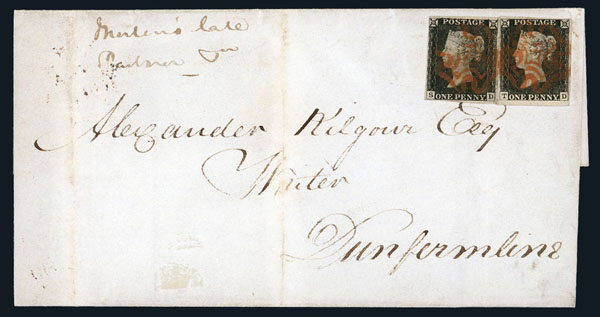 late
POSTAGE POSTAGE
S D T D
ONE PENNY ONE PENNY
Alexander Kilgour Esq
Writer
Dunfermline